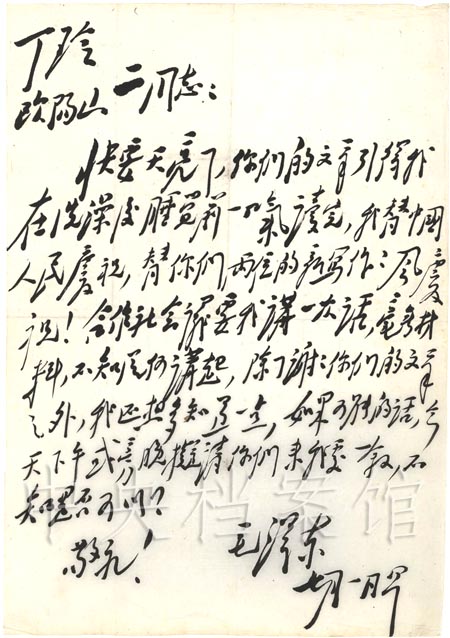 丁玲
欧阳山 二同志：
快要天亮了，你们的文章引得我
在洗澡後睡觉前一口氣讀完，我替中國
人民慶祝，替你们两位的新写作作风慶
祝！合作社会議要我講一次话，毫無材
料，不知從何講起，除了謝謝你们的文章
之外，我还想多知道一点，如果可能的话，今
天下午或傍晚擬請你们来我处一敘，不
知是否可以？
中央档案馆
敬礼！
毛澤东
七月一日早